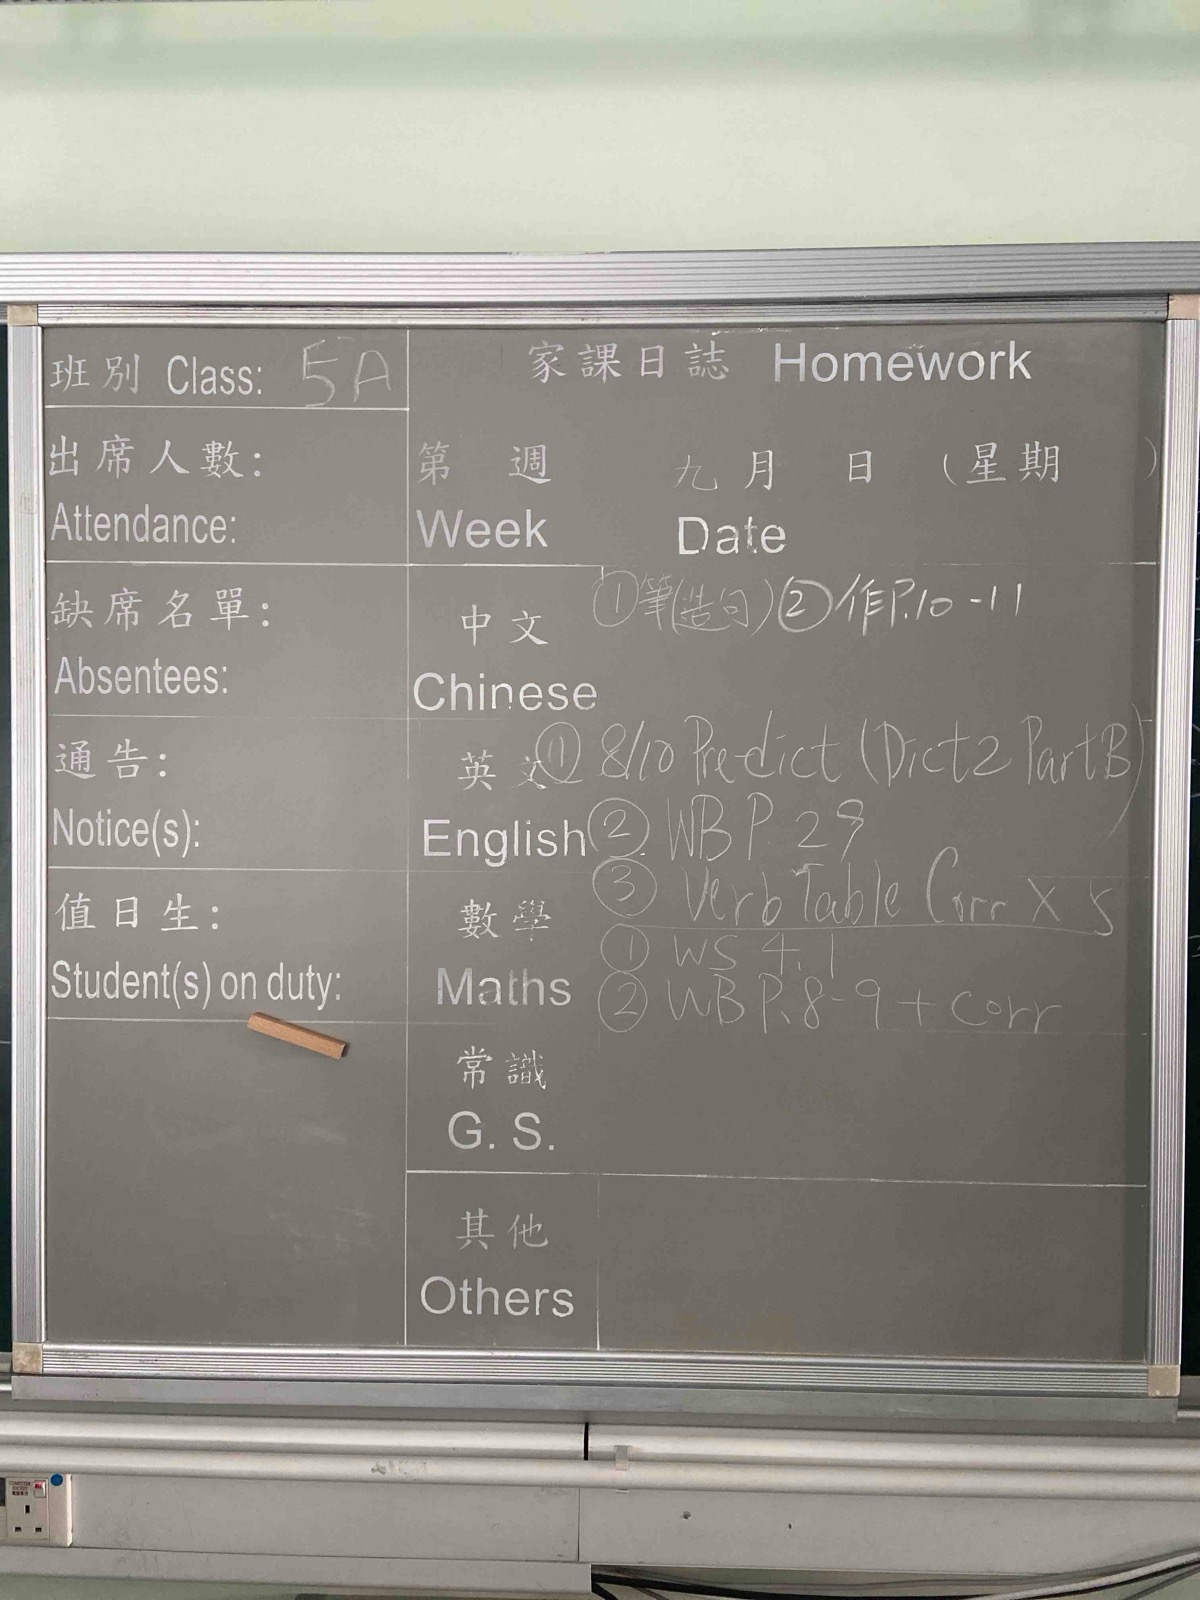 班別 Class: 5A
出席人數:
Attendance:
缺席名單:
Absentees:
通告:
Notice(s):
值日生:
Student(s) on duty:
家課日誌 Homework
第 週 九月 日 (星期 )
Week Date
中文 ①筆(造句)②作P.10-11
Chinese
英文 ① 8/10 Predict (Dict2 Part B)
English ② WB P. 29
③ Verb Table Corr x 5
數學 ① WS 4.1
Maths ② WB P.8-9 + corr
常識
G. S.
其他
Others